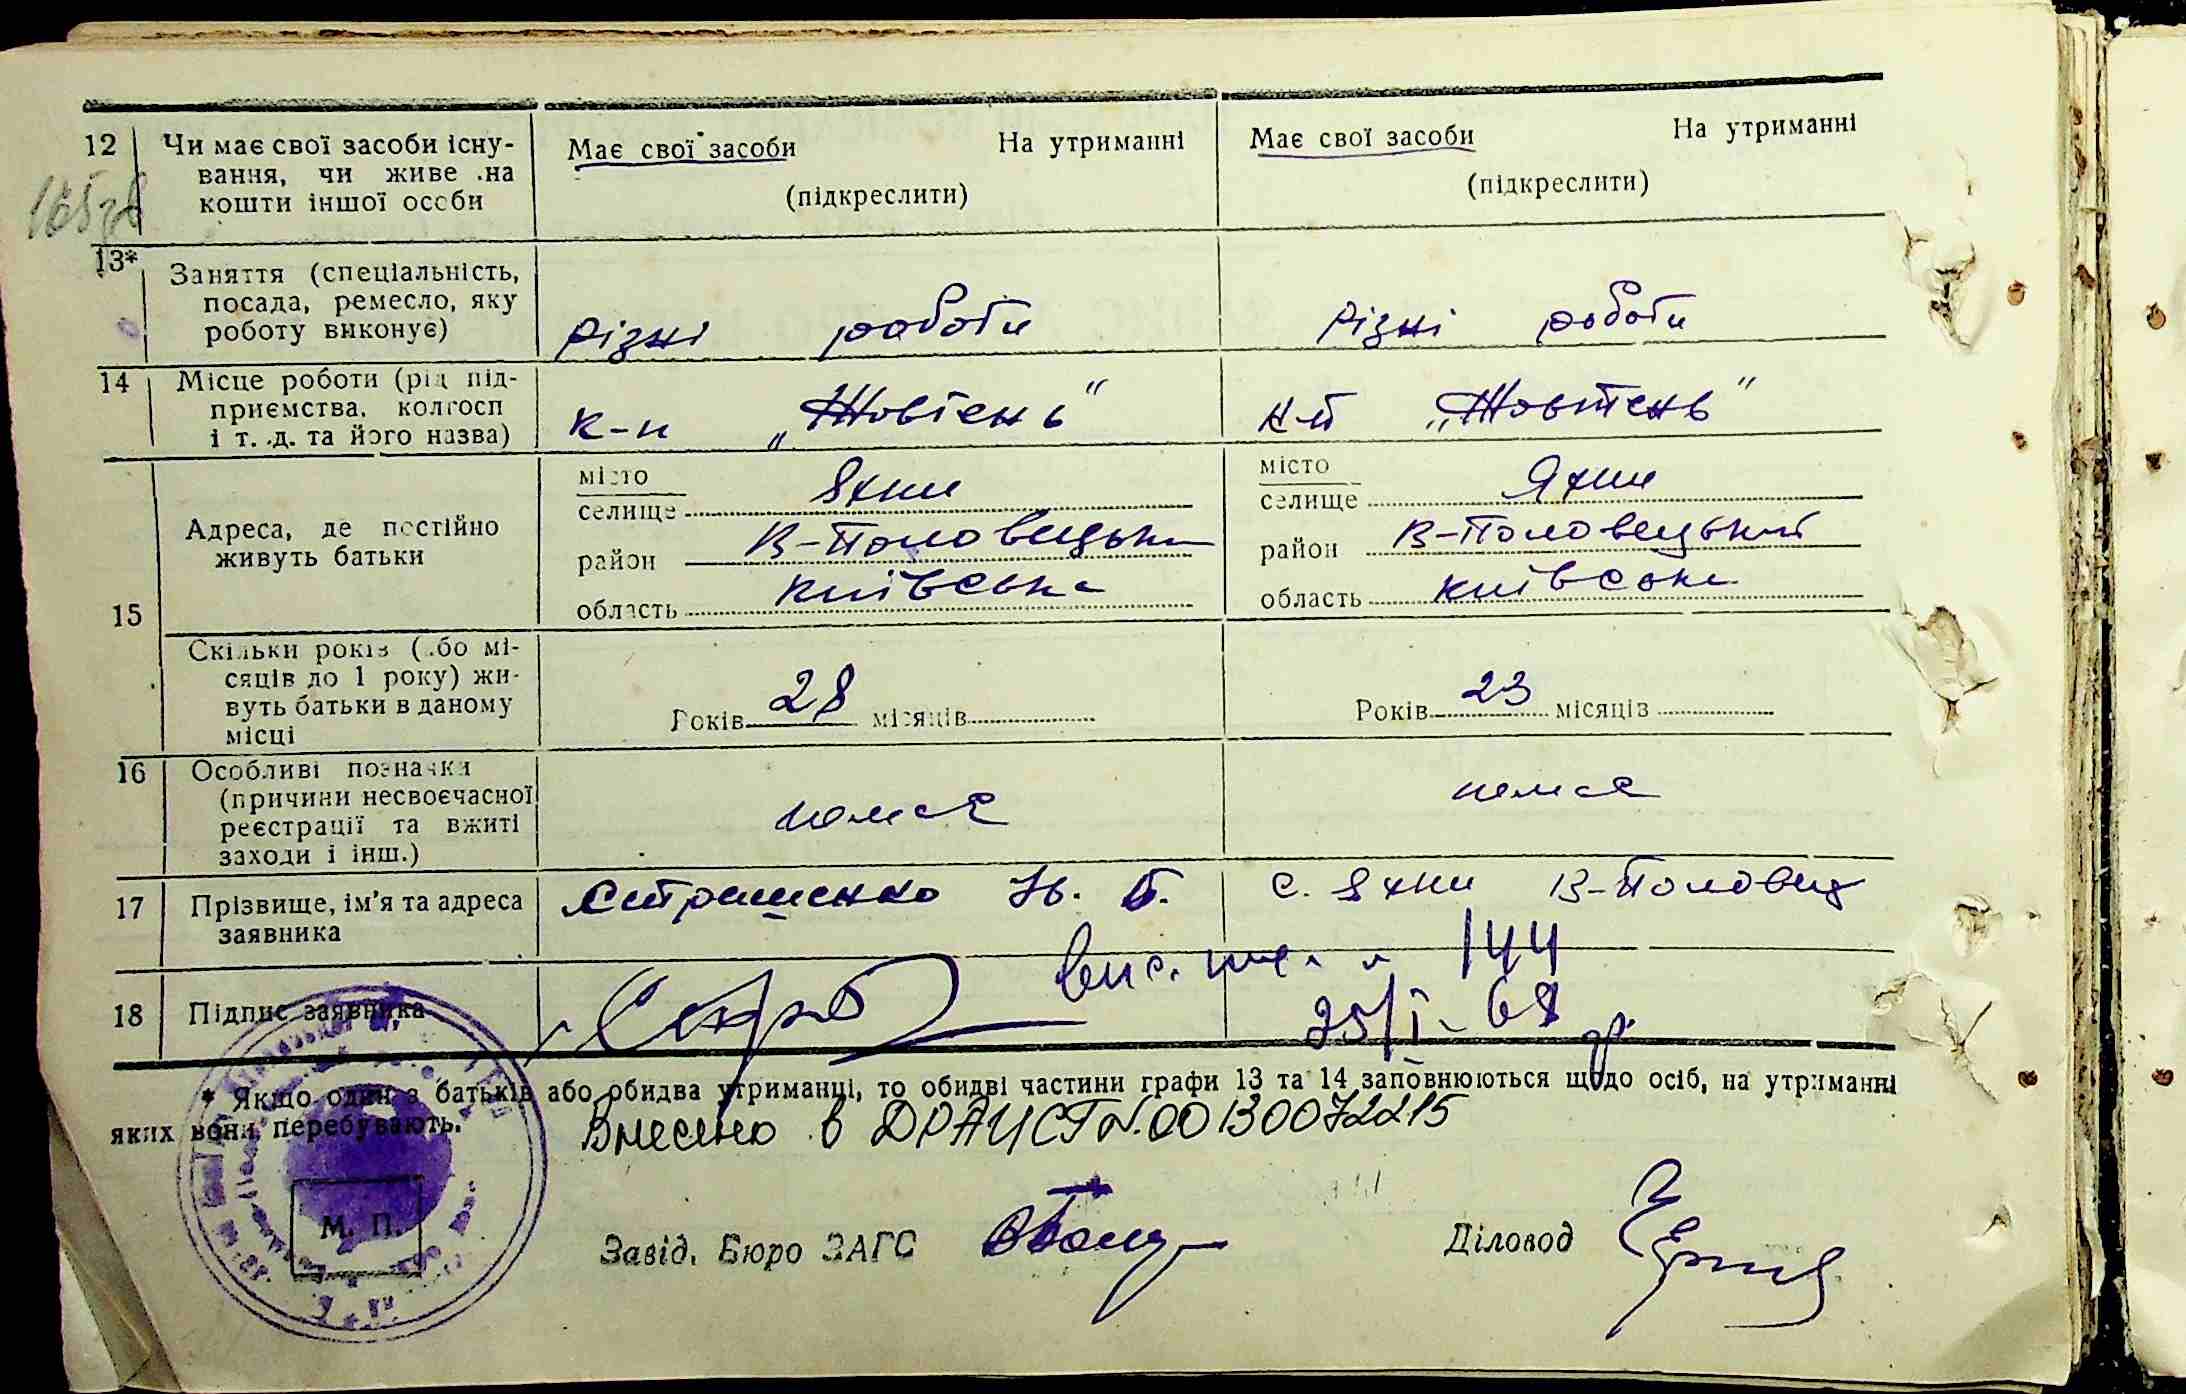 12 Чи має свої засоби існу-
вання, чи живе на
кошти іншої особи
Має свої засоби На утриманні
(підкреслити)
Має свої засоби На утриманні
(підкреслити)
13* Заняття (спеціальність,
посада, ремесло, яку
роботу виконує)
різні роботи
різні роботи
14 Місце роботи (рід під-
приємства, колгосп
і т. д. та його назва)
к-п „Жовтень"
к-п „Жовтень"
15
Адреса, де постійно
живуть батьки
місто
селище Яхни
район В-Половецький
область Київська
місто
селище Яхни
район В-Половецький
область Київська
Скільки років (або мі-
сяців до 1 року) жи-
вуть батьки в даному
місці
Років 28 місяців
Років 23 місяців
16 Особливі позначки
(причини несвоєчасної
реєстрації та вжиті
заходи і інш.)
немає
немає
17 Прізвище, ім'я та адреса
заявника
с. Яхни В-Половец
144
18 Підпис заявника
25/I- 68 р.
* Якщо один з батьків або обидва утриманці, то обидві частини графи 13 та 14 заповнюються щодо осіб, на утриманні
яких вони перебувають.
Внесено в ДРАЦСГ N.00130072215
М. П.
Завід. Бюро ЗАГС
Діловод